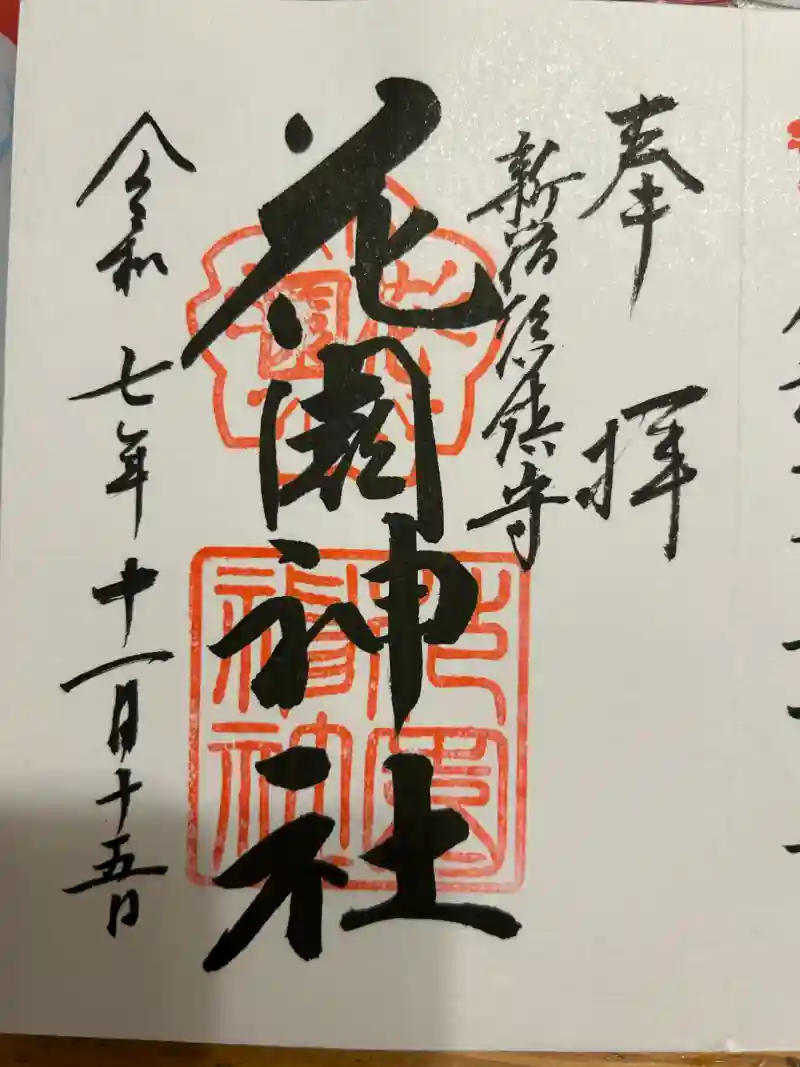 奉拝
新宿総鎮守
花園神社
花園神社
令和七年十一月十五日